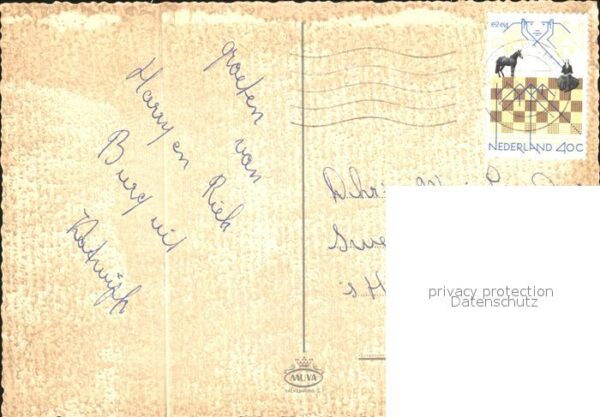 groeten van
Riek
Harry en
Burg uit
Katwijk
e2e4
NEDERLAND 40C
Dhr.
's H
privacy protection
Datenschutz
MUVA